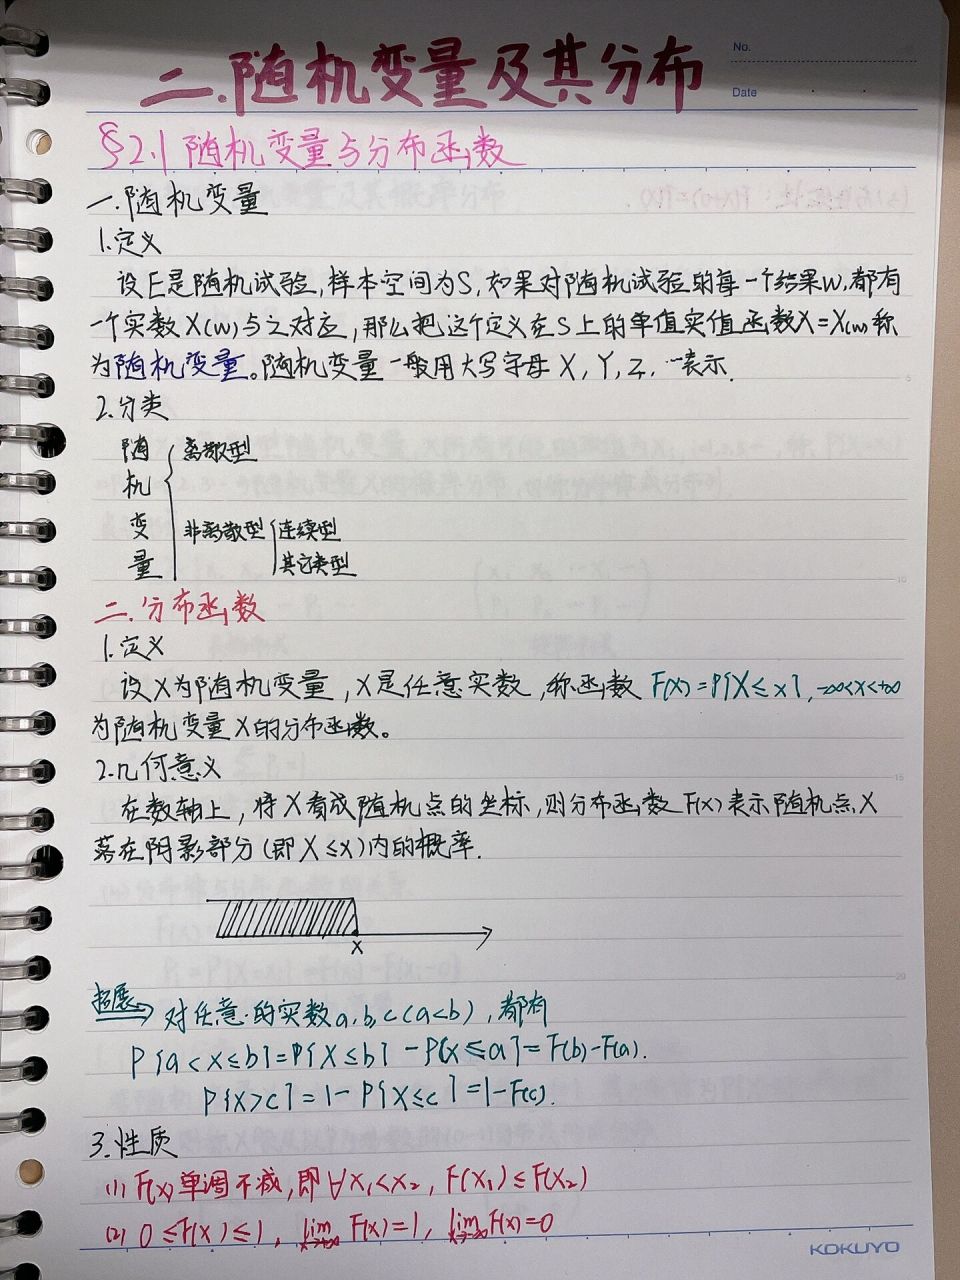 二.随机变量及其分布
No.
Date
§2.1 随机变量与分布函数
一.随机变量
1.定义
设E是随机试验,样本空间为S,如果对随机试验的每一个结果w,都有
一个实数X(w)与之对应,那么把这个定义在S上的单值实值函数X=X(w)称
为随机变量。随机变量一般用大写字母X,Y,Z,…表示.
2.分类
随机变量
离散型
非离散型
连续型
其它类型
二.分布函数
1.定义
设X为随机变量,x是任意实数,称函数F(x)=P{X≤x},-∞<x<+∞
为随机变量X的分布函数。
2.几何意义
在数轴上,将X看成随机点的坐标,则分布函数F(x)表示随机点X
落在阴影部分(即X≤x)内的概率.
x
拓展 对任意的实数a,b,c(a<b),都有
P{a<X≤b}=P{X≤b}-P{X≤a}=F(b)-F(a).
P{X>c}=1-P{X≤c}=1-F(c).
3.性质
(1) F(x)单调不减,即∀x₁<x₂,F(x₁)≤F(x₂)
(2) 0≤F(x)≤1, lim x→+∞ F(x)=1, lim x→-∞ F(x)=0
KOKUYO